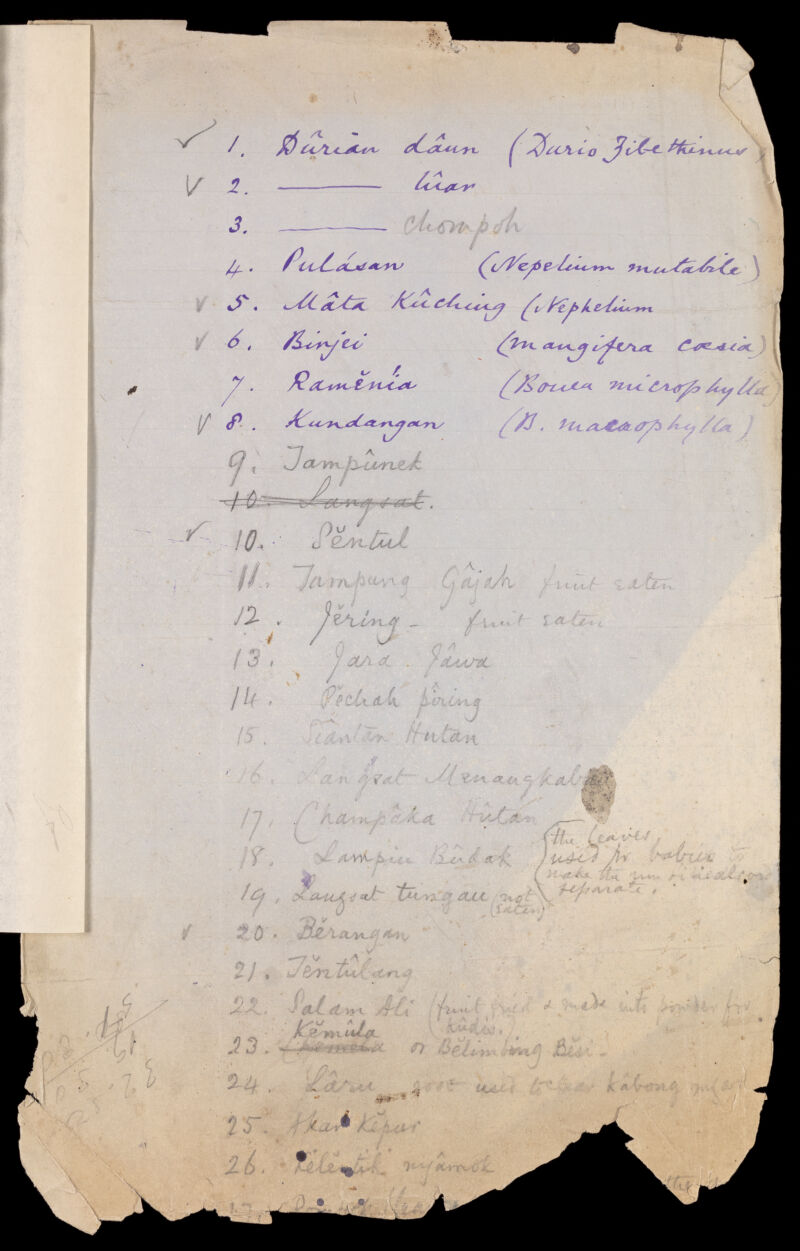 ✓ 1. Dûrian dâun (Durio Zibethinus)
✓ 2. ——— lûar
3. ——— chompoh
4. Pulásan (Nepelium mutabile)
✓ 5. Mâta Kûching (Nephelium
✓ 6. Binjei (mangifera cæsia)
7. Ramĕnía (Bouea microphylla)
✓ 8. Kundangan (B. macrophylla)
9. Tampûnek
10. Langsat.
✓ 10. Sĕntul
11. Tampung Gâjah fruit eaten
12. Jĕring - fruit eaten
13. Jara Jâwa
14. Pĕchah pîring
15. Siantan Hutan
16. Langsat Menangkabau
17. Champâka Hûtan
18. Lampin Bûdak (the leaves
used for babies to
make the
separate.
19. Langsat tungau (not
eaten)
✓ 20. Bĕrangan
21. Tĕntûlang
22. Salam Ali (fruit dried & made into powder for
kûdis.)
Kĕmûla
23. or Bĕlimbing Bĕsi.
24. Lâru root used to clear kâbong
25. Akar Kĕpur
26. Lĕlĕntik nyâmok
the